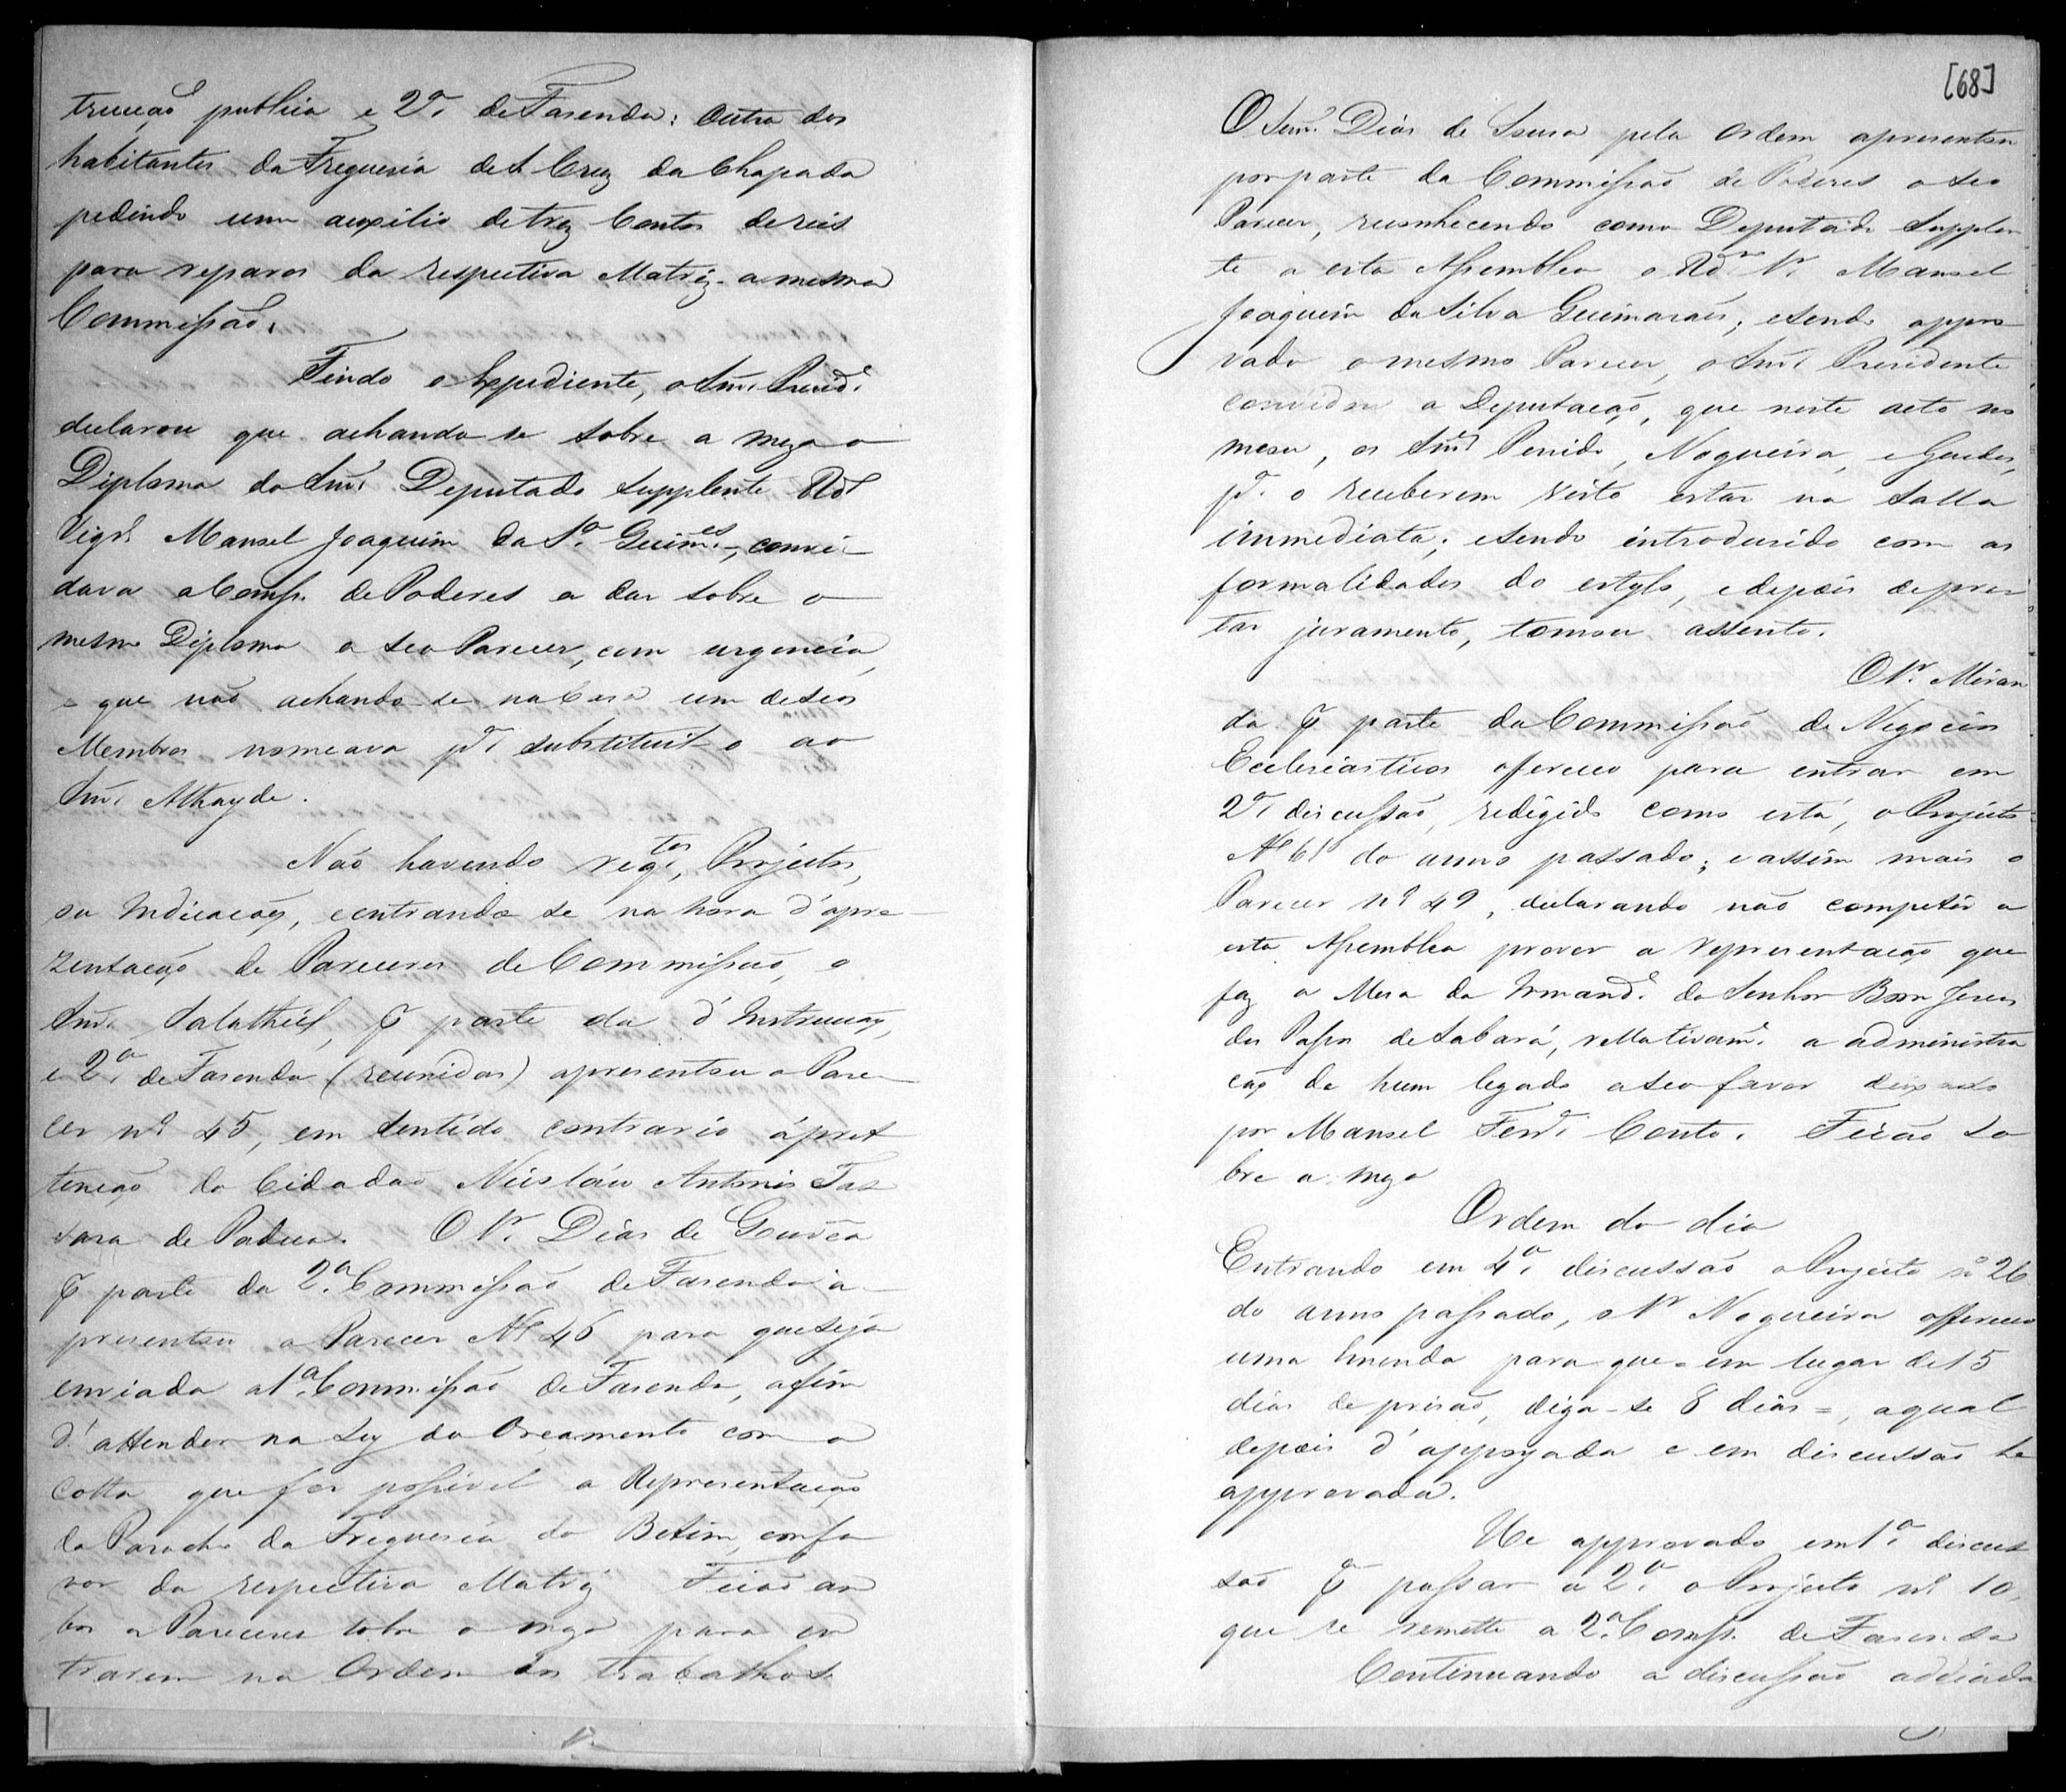 trucção publica e 2ª de Fasenda: Outra dos
habitantes da Freguesia de S Cruz da Chapada
pedindo um auxilio de trez Contos de reis
para reparos da respectiva Matriz - a mesma
Commissão.
Findo o Expediente, o Snr. Presid.e
declarou que achando-se sobre a meza o
Diploma do Snr. Deputado Supplente Rd.o
Vigr.o Manoel Joaquim da S.a Guim.es, convi-
dava a Comss. de Poderes a dar sobre o
mesmo Diploma o seo Parecer, com urgencia,
e que não achando-se na Casa um de seos
Membros nomeava p.a substituil-o ao
Snr. Athayde.
Não havendo reqtos, Projectos,
ou Indicaçoẽs, e entrando-se na hora d'apre-
zentação de Pareceres de Commissão, o
Snr. Salathiel, P parte da d'Instrucção,
e 2ª de Fasenda (reunidas) apresentou o Pare-
cer nº 45, em sentido contrario á pret
tenção do Cidadão Nicoláu Antonio Tas
sara de Padua. O Sr. Dias de Gouvêa
P parte da 2ª Commissão de Fasenda a-
presentou o Parecer Nº 46 para que seja
enviada a 1ª Commissão de Fasenda, afim
d'attender na Ley do Orçamento com a
cotta que for possivel a Representação
do Parocho da Freguesia do Betim, em fa
vor da respectiva Matriz Ficão am
bos os Pareceres sobre a meza para en
trarem na Ordem dos trabalhos
[68]
O Senr. Dias de Sousa pela Ordem apresentou
por parte da Commissão de Poderes o seo
Parecer, reconhecendo como Deputado Supplen
te a esta Assemblea o Rd.mo Sr. Manoel
Joaquim da Silva Guimarães; e sendo appro-
vado o mesmo Parecer, o Snr. Presidente
convidou a Deputação, que neste acto no
meou, os Snr.s Penido, Nogueira, e Guedes,
p.a o receberem visto estar na Salla
immediata; e sendo introdusido com as
formalidades do estylo, e depois de pres
tar juramento, tomou assento.
O Sr. Miran
da P parte da Commissão de Negocios
Ecclesiasticos offereceo para entrar em
2ª discussão, redigido como está, o Projecto
Nº 61 do anno passado; e assim mais o
Parecer nº 49, declarando não competir a
esta Assemblea prover a representação que
faz a Mesa da Irmand.e do Senhor Bom Jesus
dos Passos de Sabará, rellativam.e a administra
ção de hum legado a seo favor deixado
por Manoel Ferr.a Couto. Ficão so
bre a meza
Ordem do dia
Entrando em 4ª discussão o Projecto nº 26
do anno passado, o Sr Nogueira offereceo
uma Emenda para que = em lugar de 15
dias de prisão, diga-se 8 dias =, a qual
depois d'appoyada e em discussão he
approvada.
He approvado em 1ª discus
são P passar a 2ª o Projecto nº 10,
que se remette a 2ª Comss. de Fasenda
Continuando a discussão addiada